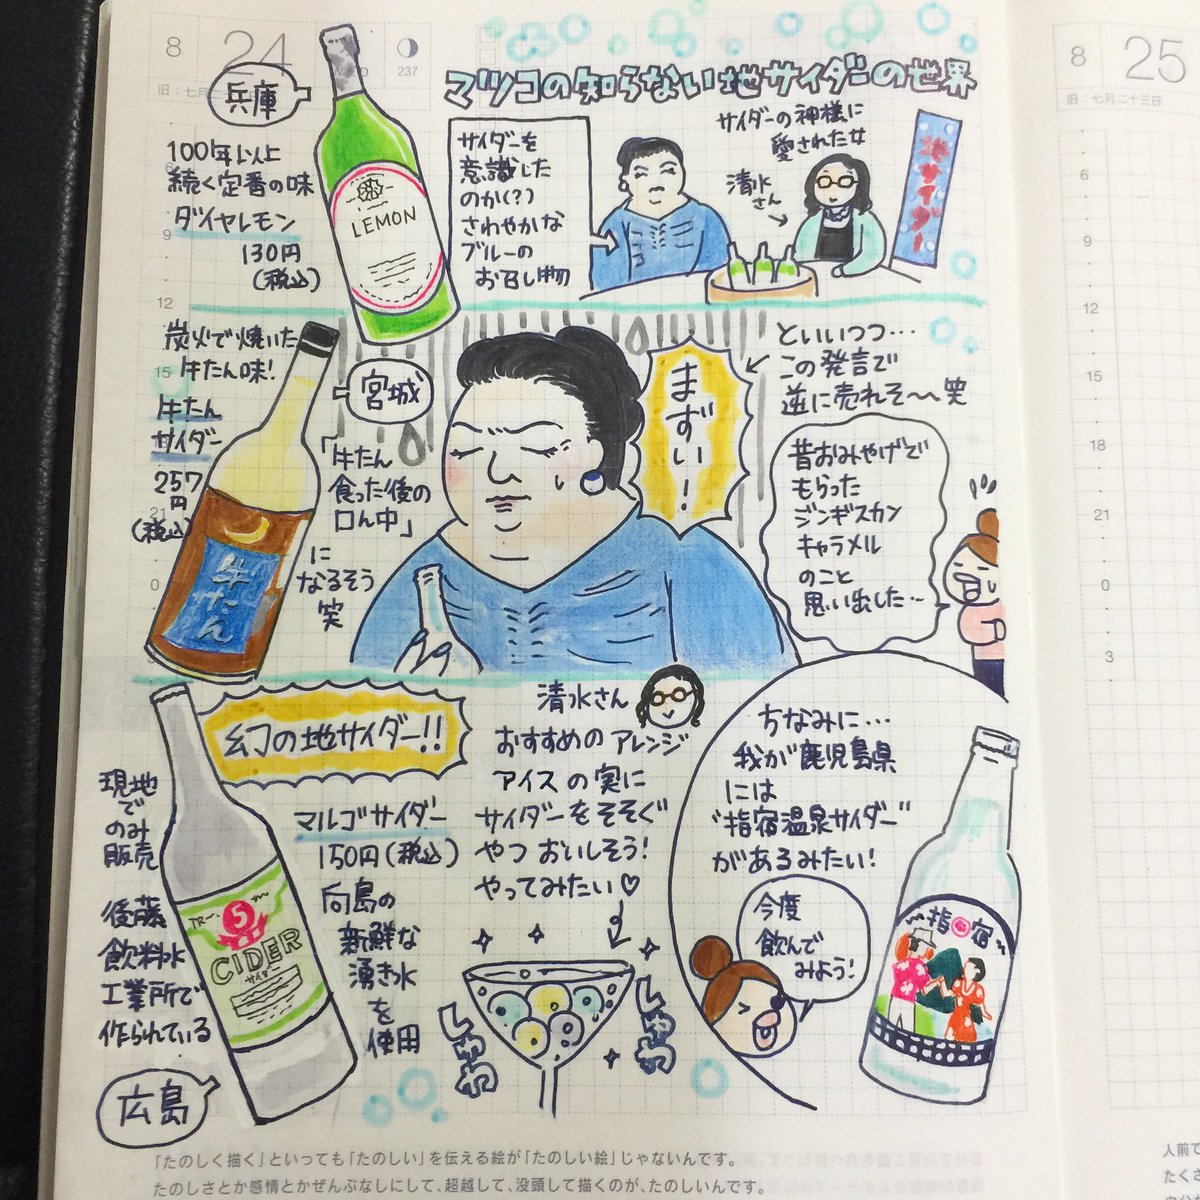 8
24
237
旧:七月二
マツコの知らない地サイダーの世界
兵庫
100年以上
続く定番の味
ダイヤレモン
130円
(税込)
LEMON
サイダーを
意識した
のか(?)
さわやかな
ブルーの
お召し物
サイダーの神様に
愛された女
清水
さん
地サイダー
炭火で焼いた
牛たん味!
牛たん
サイダー
257
円
(税込)
牛たん
宮城
「牛たん
食った後の
口ん中」
に
なるそう
笑
まずい!
といいつつ…
この発言で
逆に売れそ〜〜笑
昔おみやげで
もらった
ジンギスカン
キャラメル
のこと
思い出した…
幻の地サイダー!!
現地
での
み
販売
後藤
飲料水
工業所で
作られている
マルゴサイダー
150円(税込)
向島の
新鮮な
湧き水
を
使用
5
CIDER
サイダー
広島
清水さん
おすすめのアレンジ
アイスの実に
サイダーをそそぐ
やつおいしそう!
やってみたい♡
しゅわ
しゅわ
ちなみに…
我が鹿児島県
には
"指宿温泉サイダー"
があるみたい!
今度
飲んで
みよう!
指宿
「たのしく描く」といっても「たのしい」を伝える絵が「たのしい絵」じゃないんです。
たのしさとか感情とかぜんぶなしにして、超越して、没頭して描くのが、たのしいんです。
8
25
旧:七月二十三日
6
9
12
15
18
21
0
3
9
12
15
21
0
人前で
たくさ